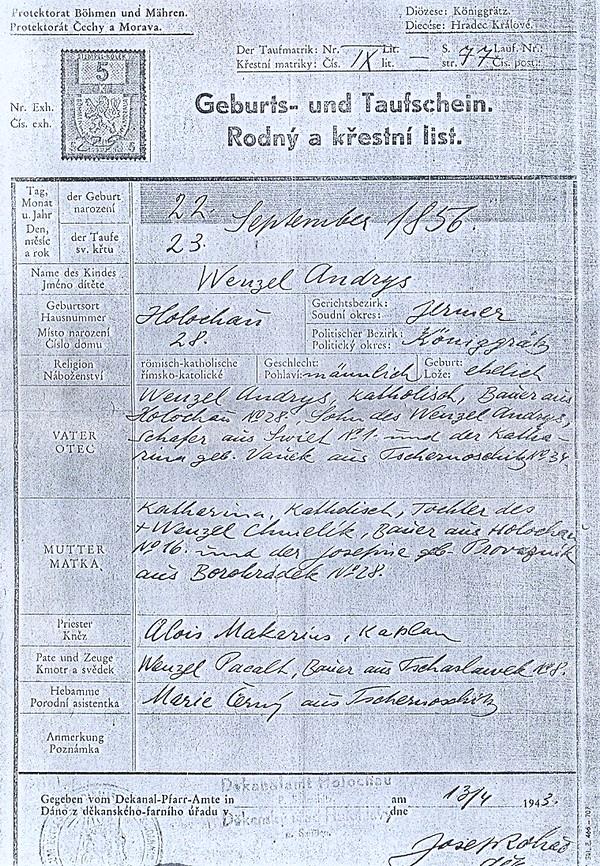 Protektorat Böhmen und Mähren.
Protektorát Čechy a Morava.
Diözese: Königgrätz.
Diecése: Hradec Králové.
Der Taufmatrik: Nr. Lit. S. Lauf. Nr.:
Křestní matriky: Čís. IX lit. — str. 77 Čís. post.:
5
5 5
Nr. Exh.
Čís. exh.
Geburts- und Taufschein.
Rodný a křestní list.
Tag, Monat u. Jahr
Den, měsíc a rok
der Geburt
narození
22.
September 1856.
der Taufe
sv. křtu
23.
Name des Kindes
Jméno dítěte
Wenzel Andrys
Geburtsort
Hausnummer
Místo narození
Číslo domu
Holochau
28.
Gerichtsbezirk:
Soudní okres:
Jermer
Politischer Bezirk:
Politický okres:
Königgrätz
Religion
Náboženství
römisch-katholische
římsko-katolické
Geschlecht:
Pohlaví: männlich
Geburt:
Lože: ehelich
VATER
OTEC
Wenzel Andrys, katholisch, Bauer aus
Holochau No 28., Sohn des Wenzel Andrys,
Schafer aus Swiet No 1. und der Katha-
rina geb. Vaněk aus Tschernoschitz No 34.
MUTTER
MATKA
Katharina, katholisch, Tochter des
+ Wenzel Chmelík, Bauer aus Holochau
No 16. und der Josefine geb. Provaznik
aus Borohrádek No 28.
Priester
Kněz
Alois Makarius, Kaplan
Pate und Zeuge
Kmotr a svědek
Wenzel Pacalt, Bauer aus Tschaslawek No 8.
Hebamme
Porodní asistentka
Marie Černý aus Tschernoschitz
Anmerkung
Poznámka
Dekanalamt Holochau
Gegeben vom Dekanal-Pfarr-Amte in am 13/4 1943.
Dáno z děkanského-farního úřadu v dne